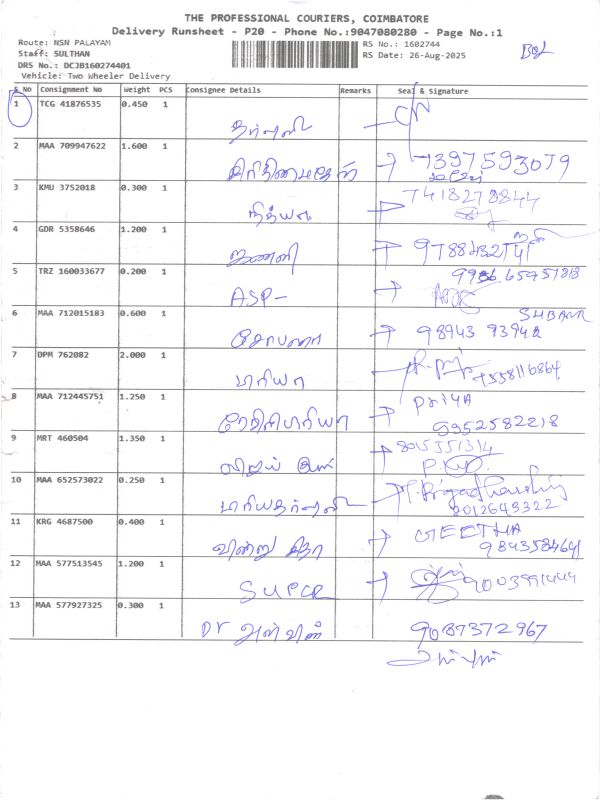 THE PROFESSIONAL COURIERS, COIMBATORE
Delivery Runsheet - P20 - Phone No.:9047080280 - Page No.:1
Route: NSN PALAYAM
RS No.: 1602744
Staff: SULTHAN
RS Date: 26-Aug-2025
DRS No.: DCJB160274401
Vehicle: Two Wheeler Delivery
S No Consignment No Weight PCS Consignee Details Remarks Seal & Signature
1 TCG 41876535 0.450 1
தர்ஷினி
2 MAA 709947622 1.600 1
7397593079
3 KMU 3752018 0.300 1
நித்யா 7418278844
4 GDR 5358646 1.200 1
ஜனனி
5 TRZ 160033677 0.200 1
ASP-
6 MAA 712015183 0.600 1
சோபனா 98943 93942
7 DPM 762082 2.000 1
பாரியா 7358116864
8 MAA 712445751 1.250 1 PRIYA
9952582218
9 MRT 460504 1.350 1 8015351314
10 MAA 652573022 0.250 1
8012643322
11 KRG 4687500 0.400 1 GEETHA
9843584641
12 MAA 577513545 1.200 1
SUPER 9003991444
13 MAA 577927325 0.300 1
Dr 9087372967